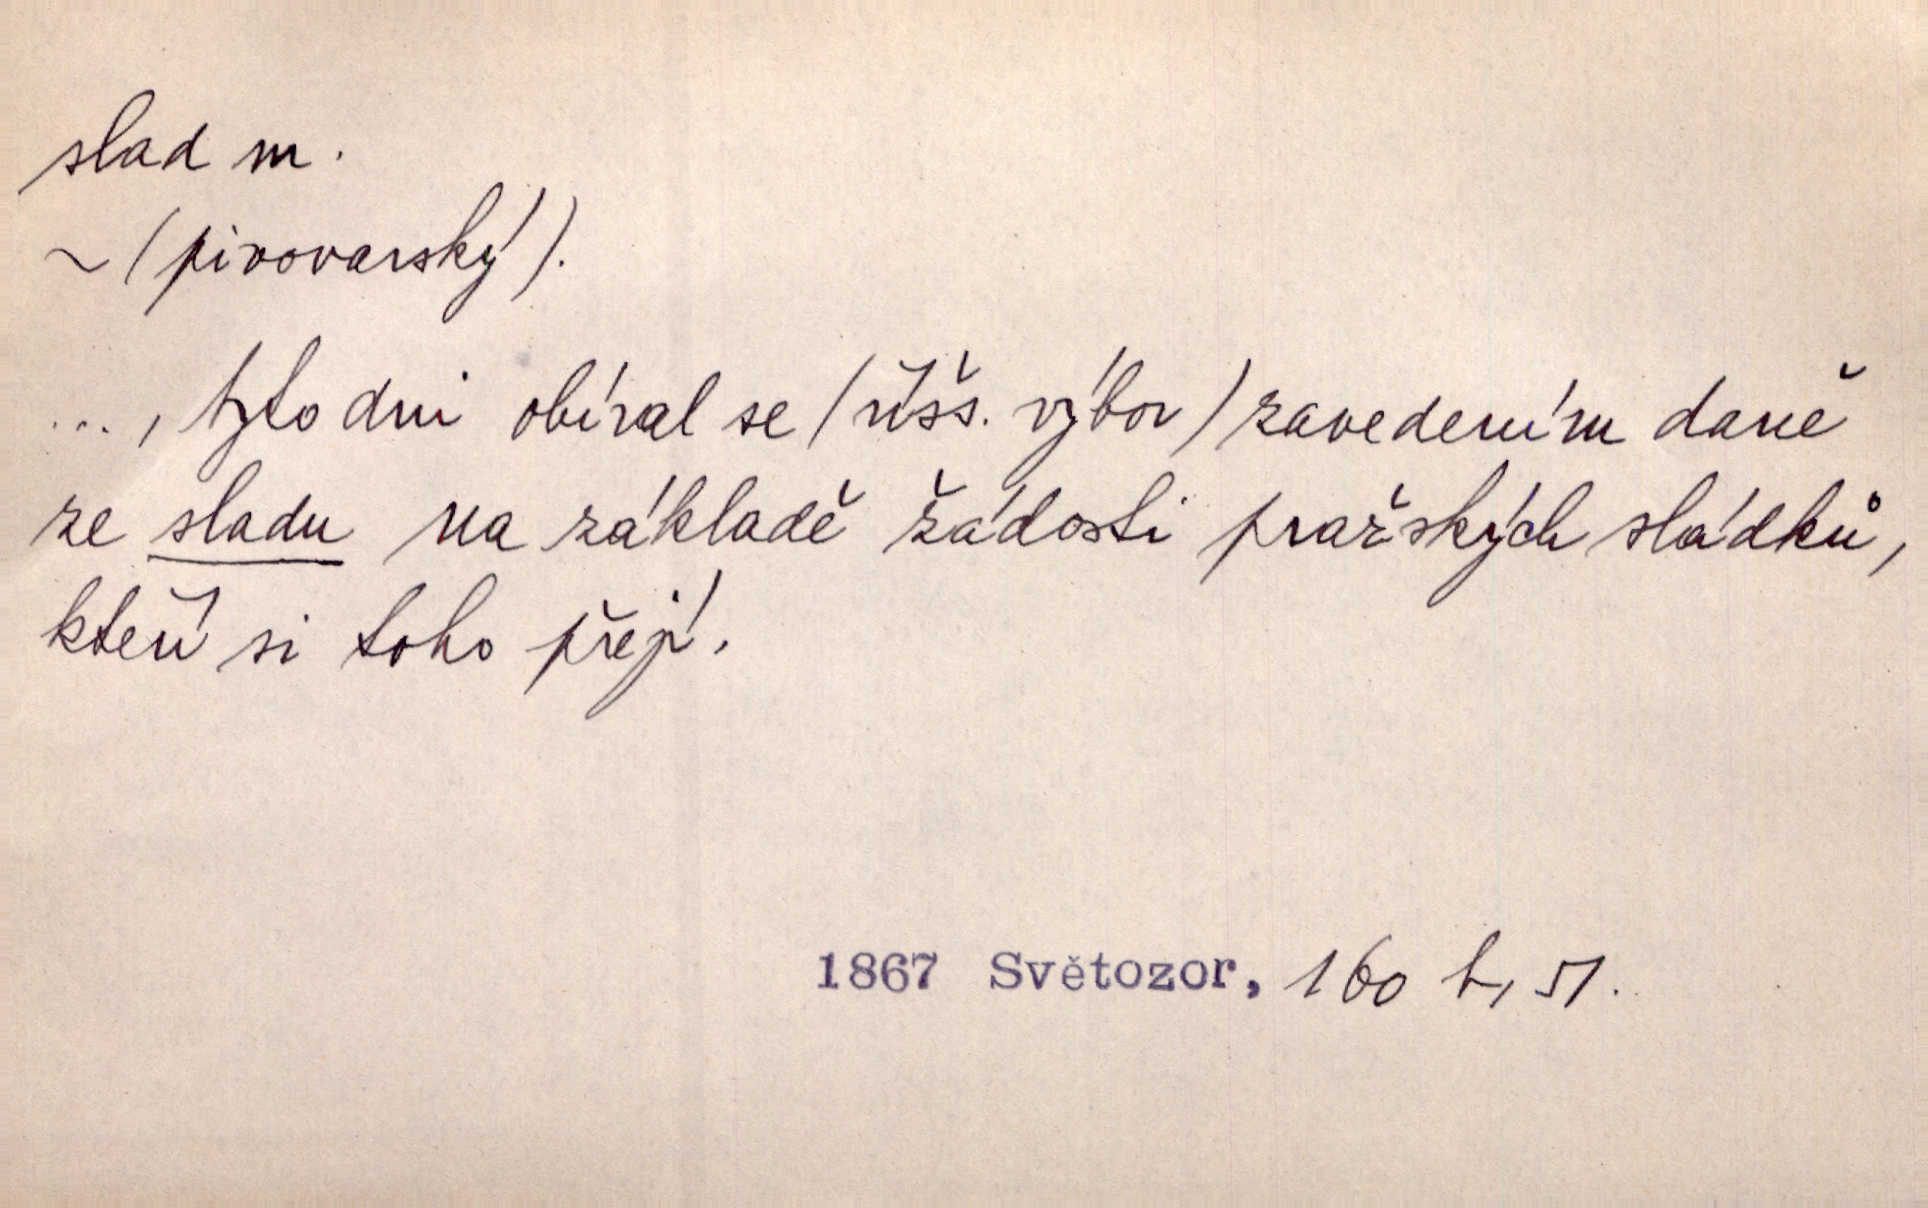 slad m.
~ (pivovarský).
..., tyto dni obíral se (říšs. výbor) zavedením daně
ze sladu na základě žádosti pražských sládků,
kteří si toho přejí.
1867 Světozor, 160 b, 51.